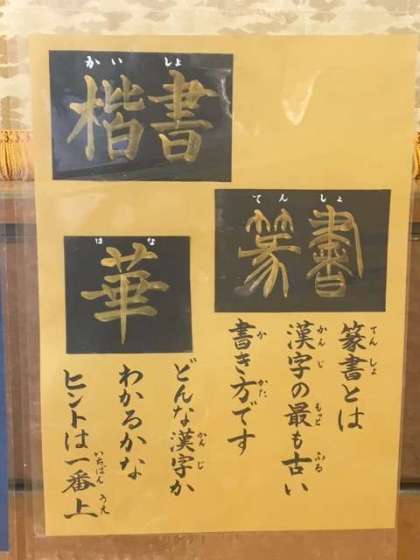 かいしょ
楷書
てんしょ
篆書
はな
華
てんしょ
篆書とは
かんじ もっと ふる
漢字の最も古い
か かた
書き方です
かんじ
どんな漢字か
わかるかな
いちばん うえ
ヒントは一番上